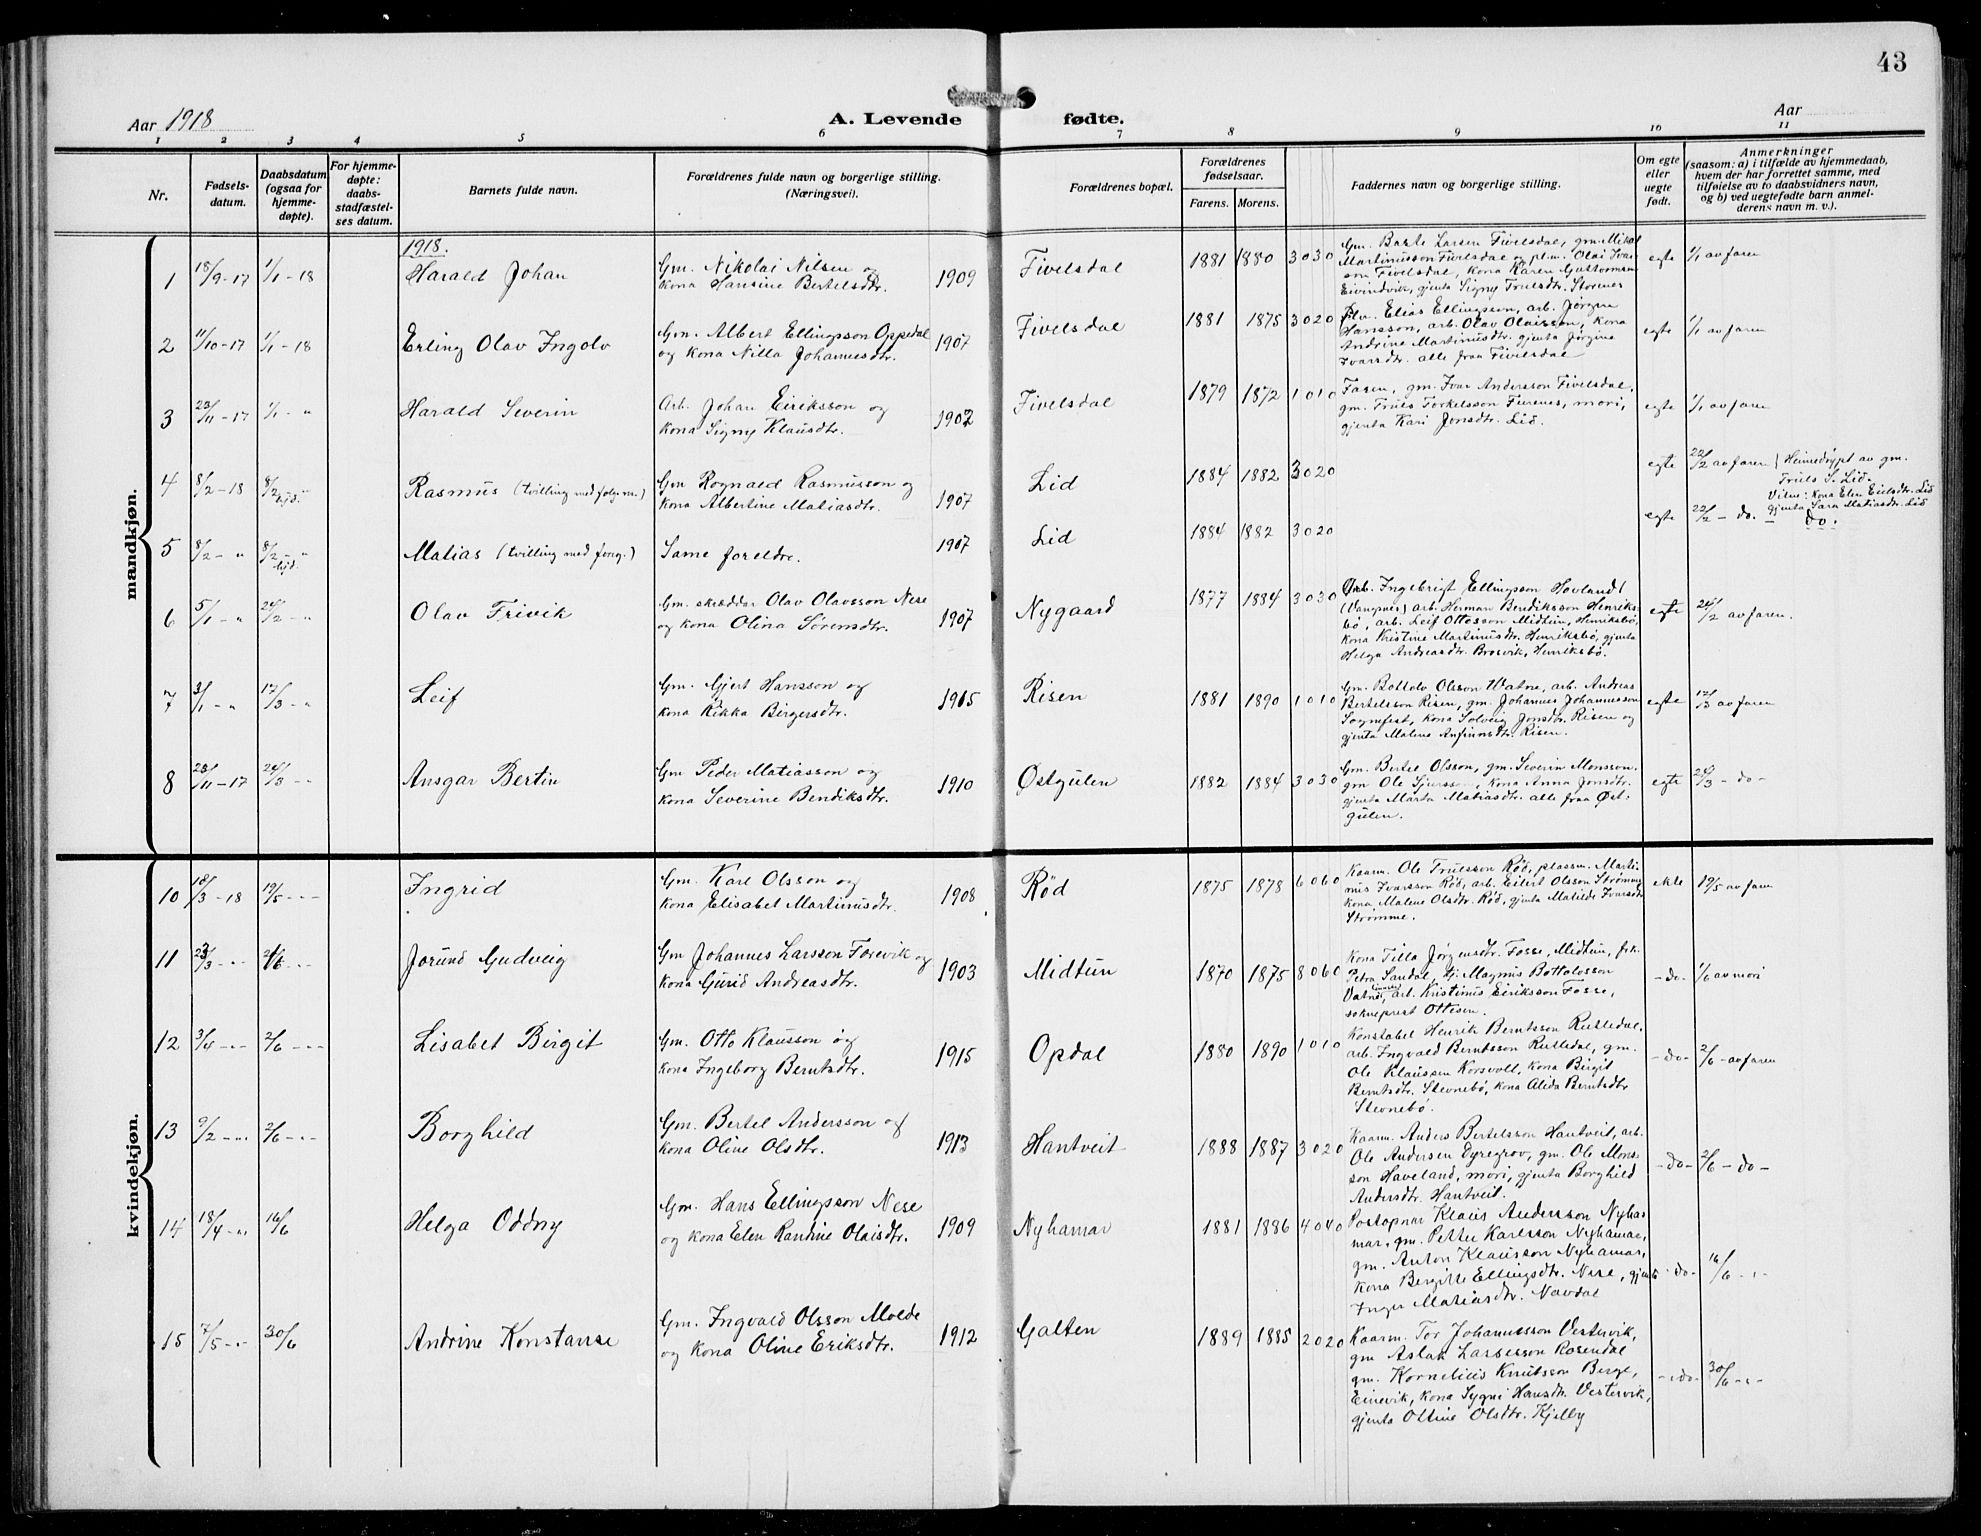 43
Aar 1918
A. Levende fødte.
Aar
1 2 3 4 5 6 7 8 9 10 11
Nr.
Fødsels-
datum.
Daabsdatum
(ogsaa for
hjemme-
døpte).
For hjemme-
døpte:
daabs-
stadfæstel-
ses datum.
Barnets fulde navn.
Forældrenes fulde navn og borgerlige stilling.
(Næringsvei).
Forældrenes bopæl.
Forældrenes
fødselsaar.
Farens. Morens.
Faddernes navn og borgerlige stilling.
Om egte
eller
uegte
født.
Anmerkninger
(saasom: a) i tilfælde av hjemmedaab,
hvem der har forrettet samme, med
tilføielse av to daabsvidners navn,
og b) ved uegtefødte barn anmel-
derens navn m. v.).
mandkjøn.
1918.
1 18/9-17 1/1-18 Harald Johan
Gm. Nikolai Nilsen og
kona Hansine Bertelsdtr. 1909
Fivelsdal 1881 1880 3 0 3 0
Gm. Barte Larsen Fivelsdal, gm. Mikal
Martinusson Fivelsdal og pl.m. Olai Ivar-
son Fivelsdal, kona Karen Gustavsen
Eivindvik, gjenta Signy Trulsdtr. Storenes
egte 1/1 av faren
2 11/10-17 1/1-18 Erling Olav Ingolv
Gm. Albert Ellingsson Oppedal
og kona Nilla Johannesdtr. 1907
Fivelsdal 1881 1875 3 0 2 0
Elias Ellingsson, arb. Jørgine
Hansson, arb. Olav Olaisson, kona
Andrine Martinusdtr. gjenta Jørgine
Ivarsdtr. alle fraa Fivelsdal
egte 1/1 av faren
3 23/11-17 1/1 - " Harald Severin
Arb. Johan Eiriksson og
kona Signy Klausdtr. 1902
Fivelsdal 1879 1872 1 0 1 0
Faren, gm. Ivar Andersson Fivelsdal,
gm. Truls Torkelsson Furenes, mori,
gjenta Kari Jonsdtr. Lid.
egte 1/1 av faren
4 8/2-18 8/2 - " Rasmus (tvilling med følgjem.)
Gm Rognald Rasmusson og
kona Albertine Matiasdtr. 1907
Lid 1884 1882 3 0 2 0
egte 22/2 av faren / Heimedøypt av gm.
Truls S. Lid.
Vitne: kona Elen Eielsdtr. Lid
gjenta Sara Matiasdtr. Lid
5 8/2 - " 8/2 - " Matias (tvilling med foreg.)
Same foreldre. 1907
Lid 1884 1882 3 0 2 0
egte 22/2 - do. - do.
6 5/1 - " 24/2 - " Olav Frivik
Gm. skræddar Olav Olavsson Nese
og kona Olina Sørensdtr. 1907
Nygaard 1877 1884 3 0 3 0
Arb. Ingebrigt Ellingson Hovland
(Vangnes) arb. Herman Bendiksson Henriks-
bø, arb. Leif Ottosson Midtun, Henriksbø,
kona Kristine Martinusdtr. Henriksbø, gjenta
Helga Andreasdtr. Brosvik, Henriksbø.
egte 24/2 av faren.
7 3/1 - " 17/3 - " Leif
Gm. Gjert Hansson og
kona Rikka Birgersdtr. 1915
Risen 1881 1890 1 0 1 0
Gm. Bottolv Olsson Watne, arb. Andreas
Bertelsson Risen, gm. Johannes Johannesson
Sognfest, kona Solveig Jonsdtr. Risen og
gjenta Malene Anfinnsdtr. Risen.
egte 17/3 av faren
8 23/11-17 24/3 - " Ansgar Bertin
Gm Peder Matiasson og
kona Severine Bendiksdtr. 1910
Østgulen 1882 1884 3 0 3 0
Gm. Bertel Olsson, gm. Severin Monsson,
gm Ole Sjursson, kona Anna Jonsdtr.
gjenta Marta Matiasdtr. alle fraa Øst-
gulen.
egte 24/3 - do -
kvindekjøn.
10 18/3-18 19/5 - " - Ingrid
Gm. Karl Olsson og
kona Elisabet Martinusdtr. 1908
Rød 1875 1878 6 0 6 0
Kaarm. Ole Trulsson Rød, plassm. Marti-
nus Ivarsson Rød, arb. Eilert Olsson Strømme
kona Malene Olsdtr. Rød, gjenta Matilde Ivarsdtr
Strømme.
ekte 19/5 av faren
11 23/3 - " - Jorund Gudveig
Gm Johannes Larsson Forevik og
kona Gurid Andreasdtr. 1903
Midtun 1870 1875 8 0 6 0
Kona Tilla Jørgensdtr. Fosse, Midtun, frk.
Petra Sandal, Magnus Bottolvsson
Vatne, arb. Kristinus Eiriksson Fosse,
sokneprest Ottesen.
- do - 1/6 av mori
12 3/4 - " - 2/6 - " - Lisabet Birgit
Gm. Otto Klausson og
kona Ingeborg Berntsdtr. 1915
Opdal 1880 1890 1 0 1 0
Konstabel Henrik Berntsson Rutledal,
arb. Ingvald Berntsson Rutledal, gm.
Ole Klausson Korsvoll, kona Birgit
Berntsdtr. Stevnebø, kona Alida Berntsdtr
Stevnebø.
- do - 2/6 - av faren
13 9/2 - " - 2/6 - " - Borghild
Gm. Bertel Andersson og
kona Oline Olsdtr. 1913
Hantveit 1888 1887 3 0 2 0
Kaarm. Anders Bertelsson Hantveit, arb.
Ole Andersen Dyregrov, gm. Ole Mons-
son Haveland, mori, gjenta Borghild
Andersdtr. Hantveit.
- do - 2/6 - do -
14 18/4 - " 16/6 Helga Oddny
Gm. Hans Ellingsson Nese
og kona Elen Randine Olaisdtr. 1909
Nyhamar 1881 1886 4 0 4 0
Postopnar Klaus Andersson Nyha-
mar, gm. Petter Karlsson Nyhamar,
gm. Anton Klausson Nyhamar,
kona Bergitte Ellingsdtr. Nese, gjenta
Inger Matiasdtr. Navdal
- do - 16/6 - " -
15 7/5 - " 30/6 Andrine Konstanse
Gm. Ingvald Olsson Molde
og kona Oline Eriksdtr. 1912
Galten 1889 1885 2 0 2 0
Kaarm. Tor Johannesson Vestervik,
gm Aslak Larsesson Rosendal
gm. Kornelius Knutsson Berge,
Einevik, kona Sygni Hansdtr. Vestervik,
gjenta Oltine Olsdtr. Kjelby
- do - 30/6 - " -